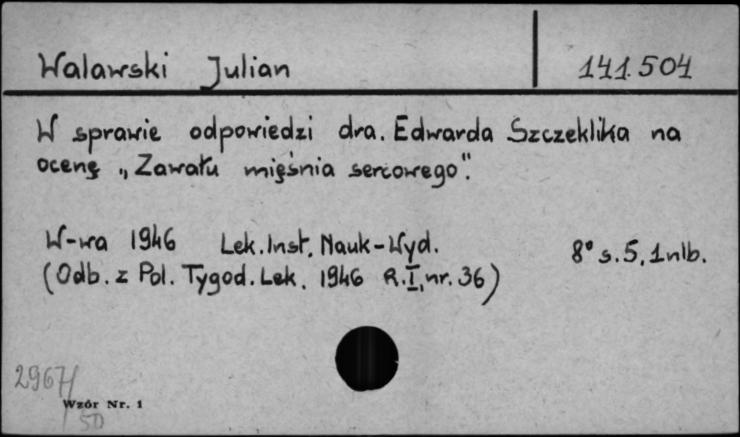 Walawski Julian 141.504
W sprawie odpowiedzi dra. Edwarda Szczeklika na
ocenę „Zawału mięśnia sercowego".
W-wa 1946 Lek. Inst. Nauk-Wyd. 8° s. 5, 1 nlb.
(Odb. z Pol. Tygod. Lek. 1946 R. I, nr. 36)
2967/
Wzór Nr. 1
50